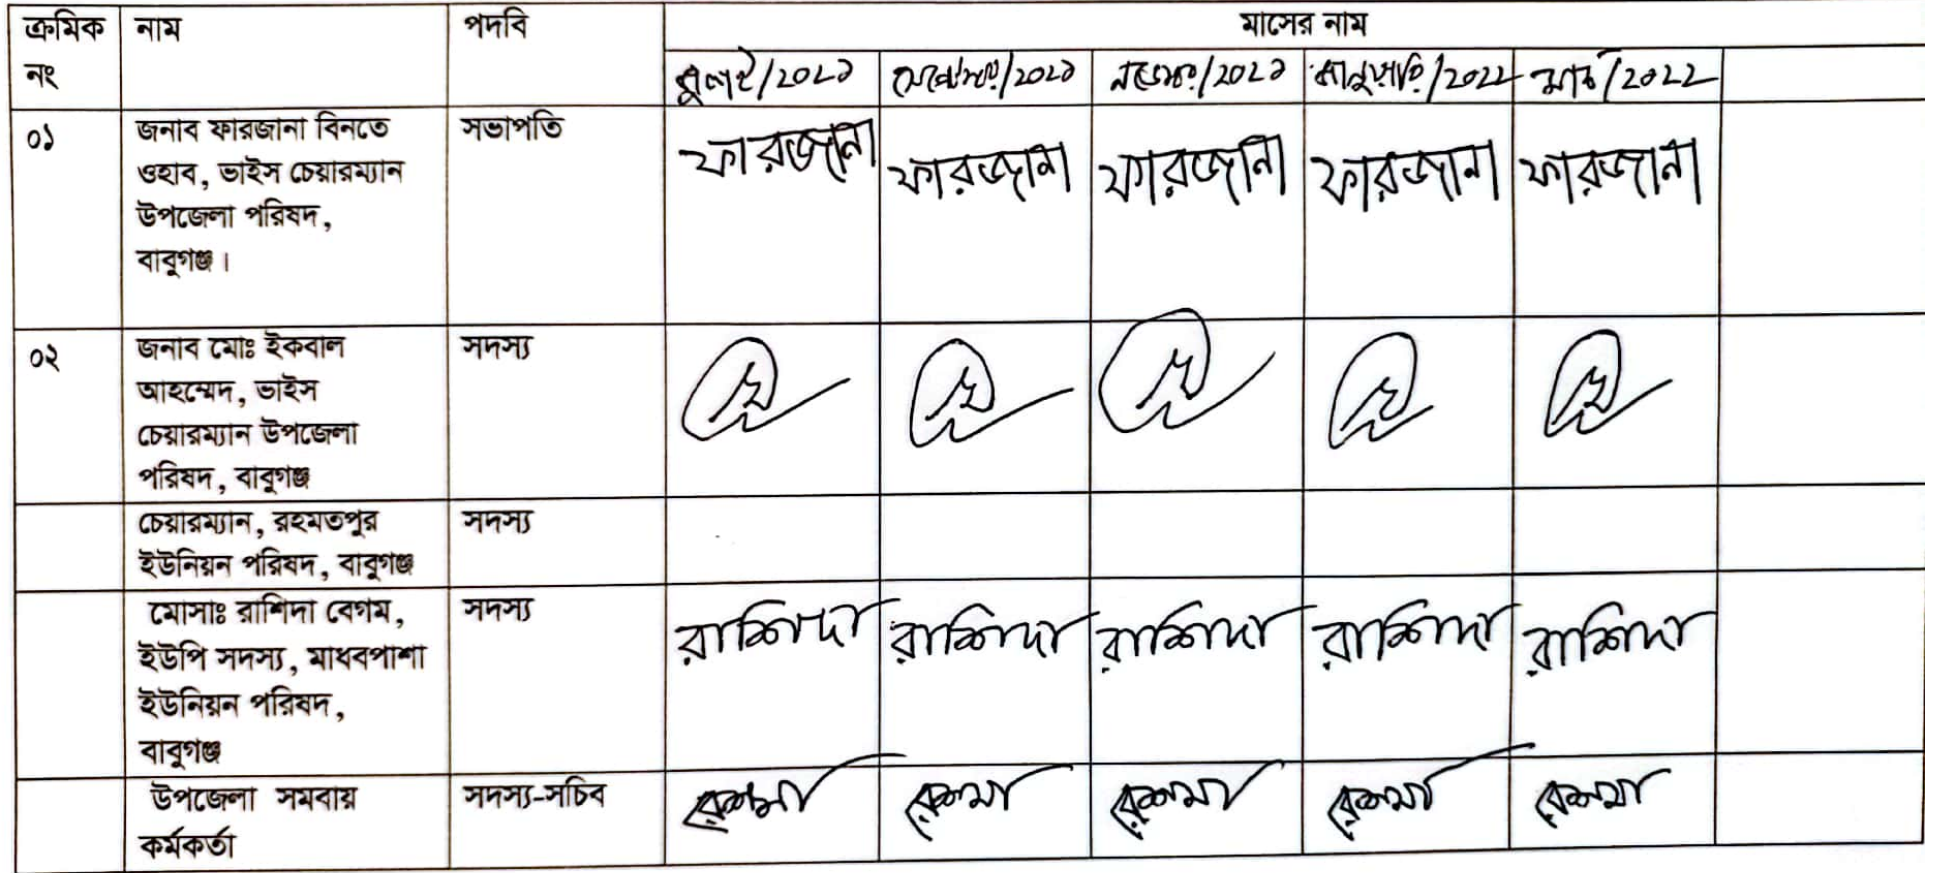 ক্রমিক নং
নাম
পদবি
মাসের নাম
জুলাই/২০২১
সেপ্টেম্বর/২০২১
নভেম্বর/২০২১
জানুয়ারি/২০২২
মার্চ/২০২২
০১
জনাব ফারজানা বিনতে
ওহাব, ভাইস চেয়ারম্যান
উপজেলা পরিষদ,
বাবুগঞ্জ।
সভাপতি
ফারজানা
ফারজানা
ফারজানা
ফারজানা
ফারজানা
০২
জনাব মোঃ ইকবাল
আহম্মেদ, ভাইস
চেয়ারম্যান উপজেলা
পরিষদ, বাবুগঞ্জ
সদস্য
চেয়ারম্যান, রহমতপুর
ইউনিয়ন পরিষদ, বাবুগঞ্জ
সদস্য
মোসাঃ রাশিদা বেগম,
ইউপি সদস্য, মাধবপাশা
ইউনিয়ন পরিষদ,
বাবুগঞ্জ
সদস্য
রাশিদা
রাশিদা
রাশিদা
রাশিদা
রাশিদা
উপজেলা সমবায়
কর্মকর্তা
সদস্য-সচিব